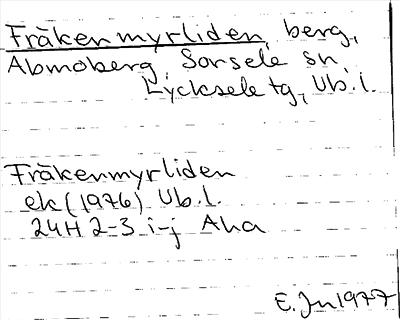 Fräkenmyrliden, berg,
Abmoberg, Sorsele sn,
Lycksele tg, Vb.l.
Fräkenmyrliden
ek (1976) Vb.l.
24H 2-3 i-j Aha
E. Jn 1977